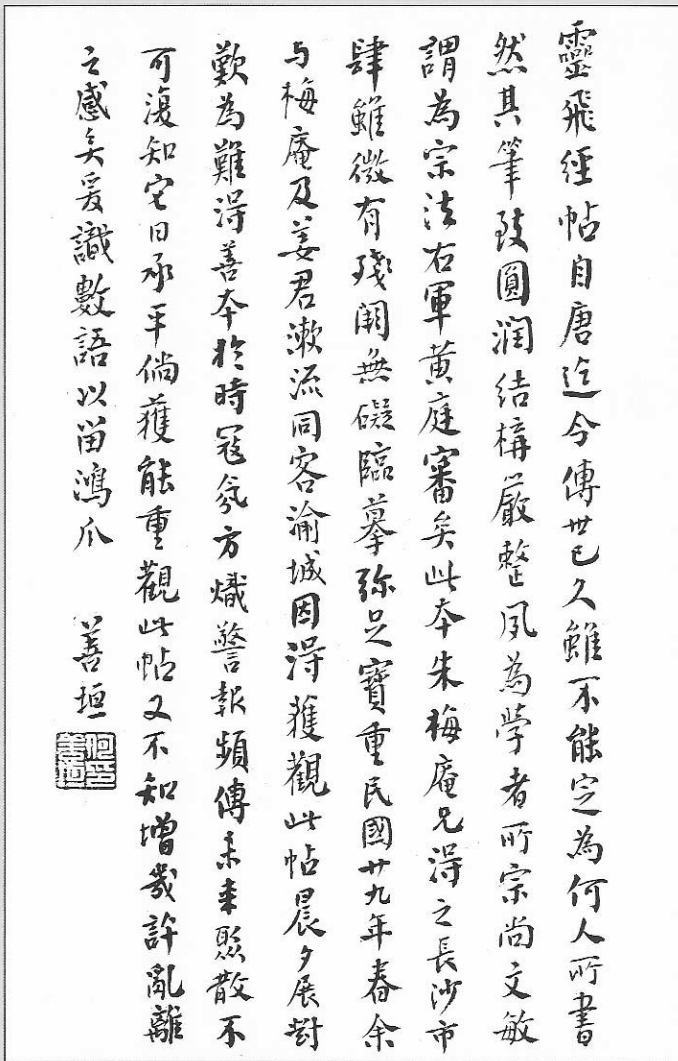 靈飛經帖自唐迄今傳世已久雖不能定為何人所書
然其筆致圓润結構嚴整夙為學者所宗尚文敏
謂為宗法右軍黄庭審矣此本朱梅庵兄得之長沙市
肆雖微有殘闕無礙臨摹弥足寶重民國廿九年春余
与梅庵及姜君漱流同客渝城因得獲觀此帖晨夕展對
歎為難得善本於時寇氛方熾警報頻傳未来聚散不
可復知它日承平倘獲能重觀此帖又不知增幾許亂離
之感矣爰識數語以留鴻爪 善垣
何善垣印